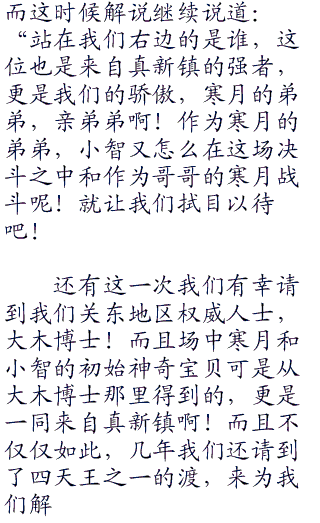 而这时候解说继续说道：
“站在我们右边的是谁，这
位也是来自真新镇的强者，
更是我们的骄傲，寒月的弟
弟，亲弟弟啊！作为寒月的
弟弟，小智又怎么在这场决
斗之中和作为哥哥的寒月战
斗呢！就让我们拭目以待
吧！
还有这一次我们有幸请
到我们关东地区权威人士，
大木博士！而且场中寒月和
小智的初始神奇宝贝可是从
大木博士那里得到的，更是
一同来自真新镇啊！而且不
仅仅如此，几年我们还请到
了四天王之一的渡，来为我
们解